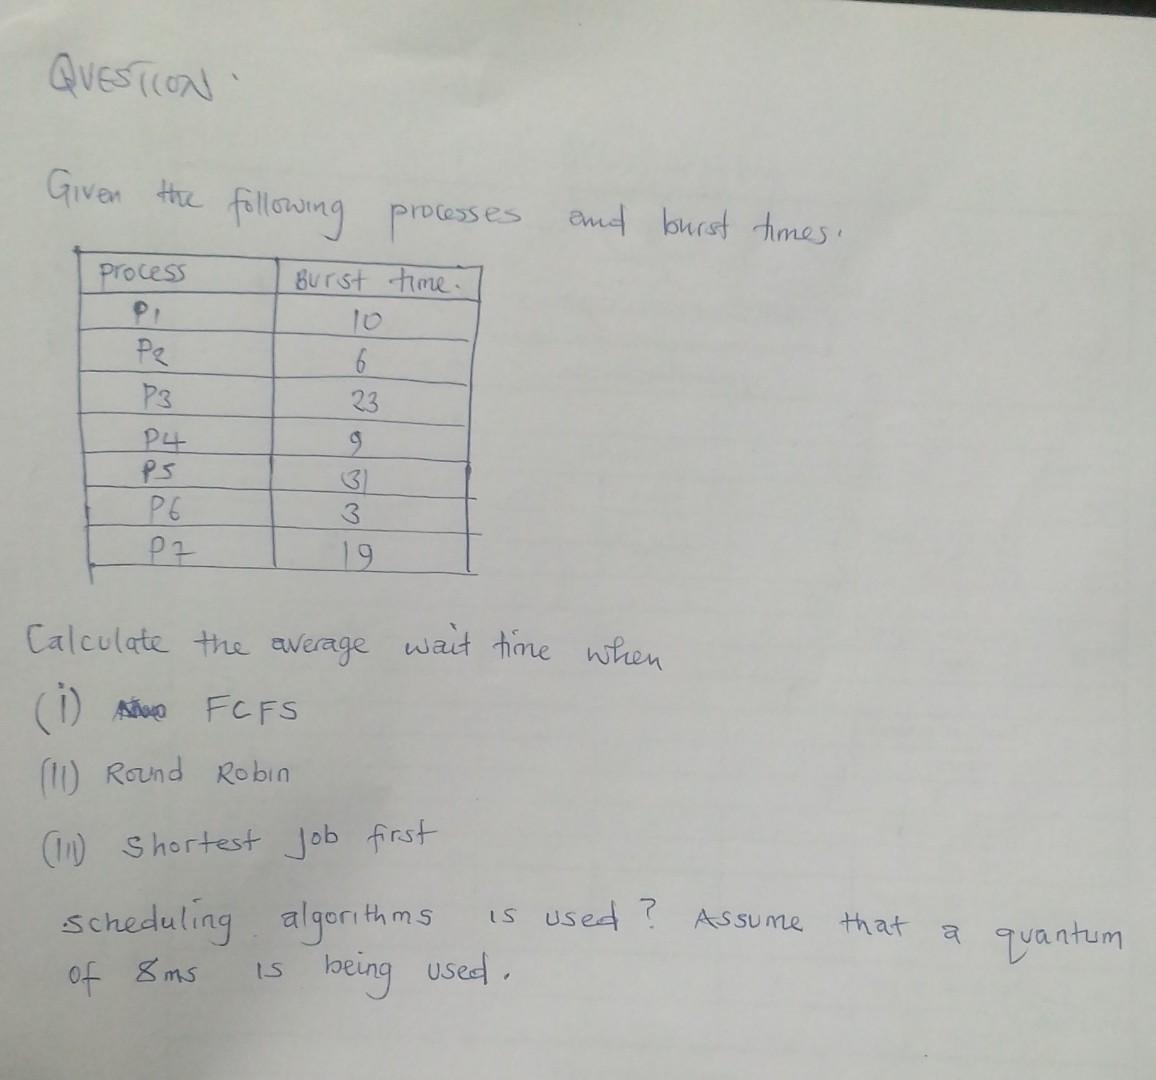 QUESTION.
Given the following processes and burst times.
Process Burst time.
P1 10
P2 6
P3 23
P4 9
P5 31
P6 3
P7 19
Calculate the average wait time when
(i) FCFS
(II) Round Robin
(III) Shortest Job first
scheduling algorithms is used? Assume that a quantum
of 8ms is being used.